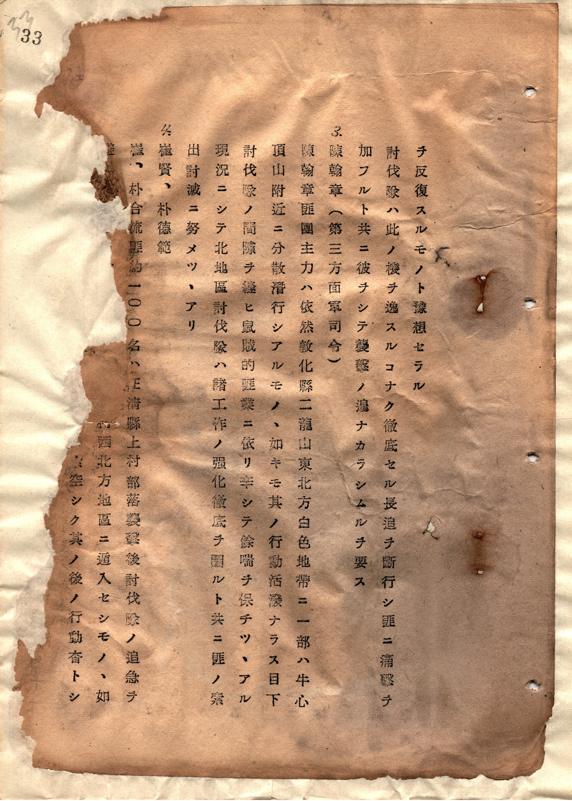 33
ヲ反復スルモノト豫想セラル
討伐隊ハ此ノ機ヲ逸スルコナク徹底セル長追ヲ斷行シ匪ニ痛擊ヲ
加フルト共ニ彼ヲシテ襲擊ノ遑ナカラシムルヲ要ス
陳翰章(第三方面軍司令)
陳翰章匪團主力ハ依然敦化縣二龍山東北方白色地帶ニ一部ハ牛心
頂山附近ニ分散潛行シアルモノヽ如キモ其ノ行動活潑ナラス目下
討伐隊ノ間隙ヲ縫ヒ鼠賊的匪業ニ依リ辛シテ餘喘ヲ保チツヽアル
現況ニシテ北地區討伐隊ハ諸工作ノ强化徹底ヲ圖ルト共ニ匪ノ索
出討滅ニ努メツヽアリ
崔賢、朴德範
崔、朴合流匪約一〇〇名ハ汪淸縣上村部落襲擊後討伐隊ノ追急ヲ
西北方地區ニ遁入セシモノヽ如
シク其ノ後ノ行動杳トシ